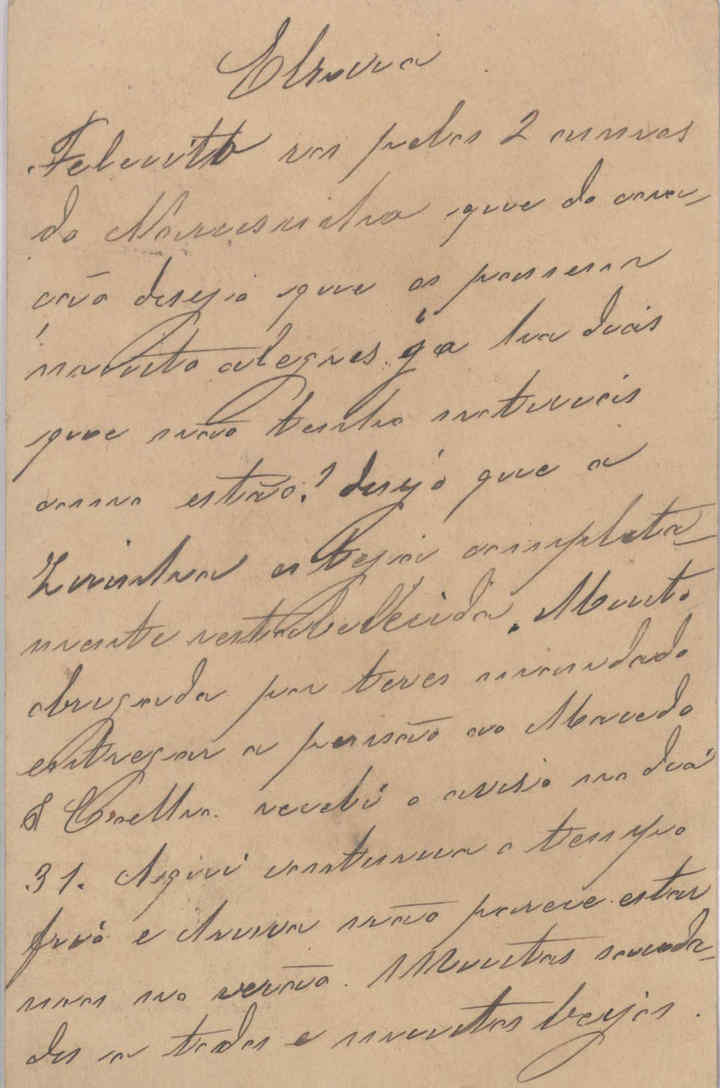 Elzira
Felicito vos pelos 2 annos
do Marcosinho que do cora-
ção desejo que os passem
muito alegres. já ha dias
que não tenho noticias
como estão? desejo que a
Zizinha esteja completa-
mente restabellecida. Muito
obrigada por teres mandado
entregar a pensão ao Macedo
& Coelho. recebi o aviso no dia
31. Aqui continua o tempo
frio e chuva não parece estar
mos no verão. Muitas sauda-
des a todos e muitos beijos.